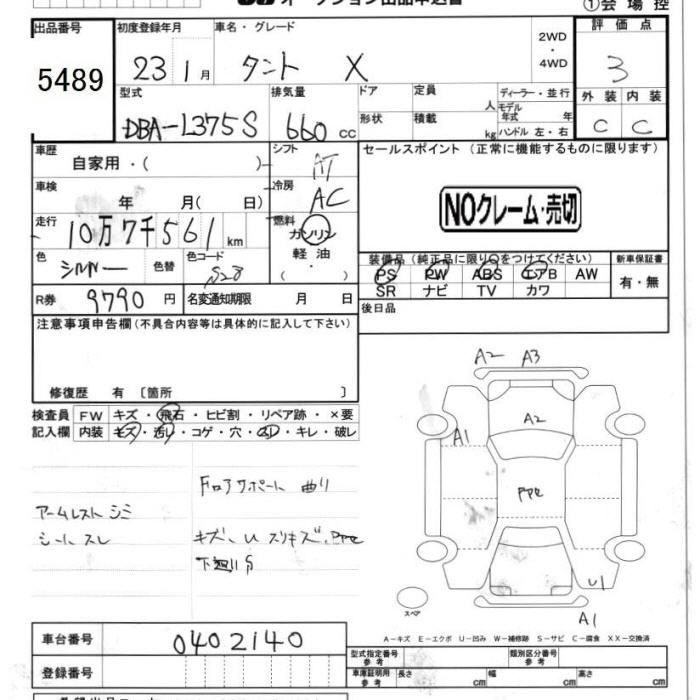 オークション出品申込書
①会場控
出品番号 初度登録年月 車名・グレード 2WD・4WD 評価点
5489 23 1月 タント X 3
型式 排気量 ドア 定員 人 ディーラー・並行 外装 内装
DBA-L375S 660cc 形状 積載 kg モデル年式 年 ハンドル 左・右 C C
車歴 自家用・( ) シフト AT セールスポイント(正常に機能するものに限ります)
車検 年 月( 日) 冷房 AC
NOクレーム・売切
走行 10万7千561km 燃料 ガソリン 軽油・( )
色 シルバー 色替 色コード S28
装備品(純正品に限り○をつけてください) 新車保証書
PS PW ABS エアB AW 有・無
SR ナビ TV カワ
R券 9790円 名変通知期限 月 日
後日品
注意事項申告欄(不具合内容等は具体的に記入して下さい)
修復歴 有 〔箇所 〕
検査員 FW キズ・飛石・ヒビ割・リペア跡・×要
記入欄 内装 キズ・汚レ・コゲ・穴・スレ・キレ・破レ
アームレスト シミ
シート スレ
F ロアサポート 曲り
キズ、U スリキズ、PPL
下廻りS
A2 A3
A2
A1
U1
A1
スペア
A-キズ E-エクボ U-凹み W-補修跡 S-サビ C-腐食 XX-交換済
車台番号 0402140
型式指定番号 参考 類別区分番号 参考
登録番号
車庫証明用 参考 長さ cm 幅 cm 高さ cm